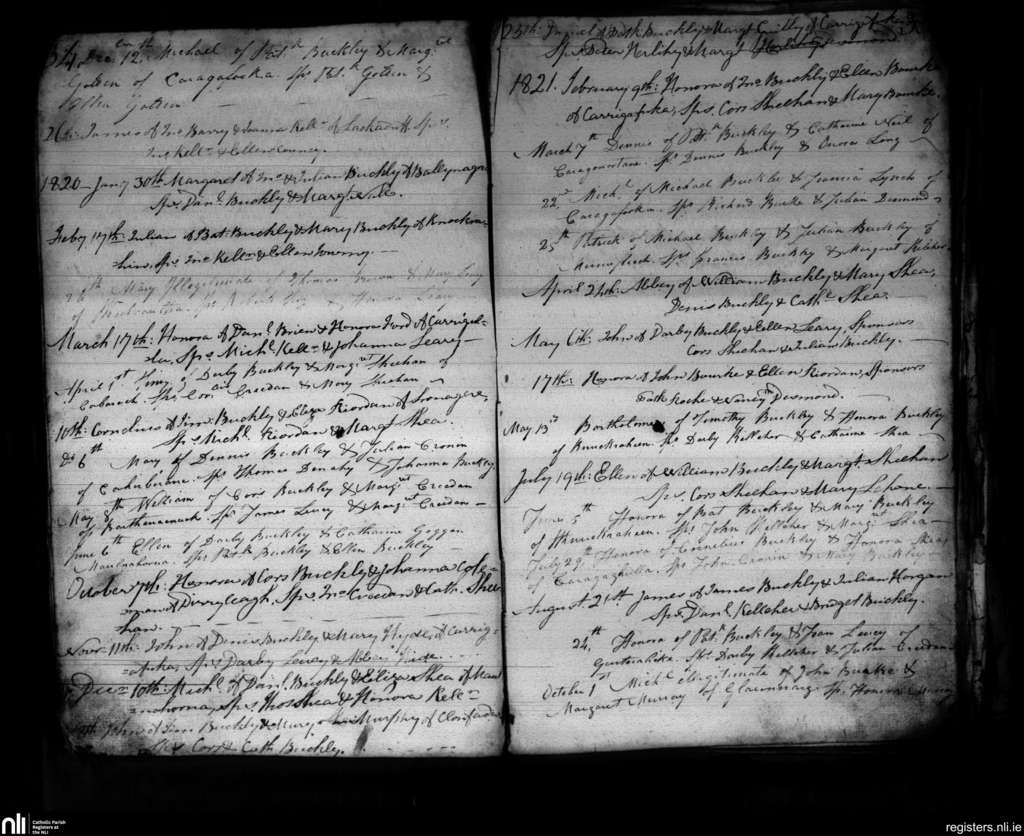 54 Dec 12. Michael of Patk Buckley & Margt
Golden of Caragafooka. Sps Patk Golden &
Ellen Golden
26th: James of Jno Barry & Joanna Kellr of Sps
Jno Kellr & Ellen
1820 – Jany 30th Margaret of Jno & Julian Buckly of Ballynagree
Sps Danl Buckly & Margt
Feby 17th: Julian of Bat: Buckly & Mary Buckly of Knockna-
Sps Jno Kellr & Ellen
26th Mary Illegitimate of Thomas & Mary
of Sps Robert & Honora Leary
March 17th: Honora of Danl Brien & Honora Ford of Carrigal-
Sps Michl Kellr & Johanna Leary
April 1st of Darby Buckley & Margt Sheehan of
Sps Corns Creedan & Mary Sheehan
10th: Cornelius of Tim: Buckly & Eliza Riordan of
Sps Michl Riordan & Margt Shea.
Do 6th Mary of Dennis Buckley & Julian Cronin
of Sps Thomas Denahy & Johanna Buckley
May 8th William of Cors Buckley & Margt Creedan
of Sps James Lucey & Margt Creedan
June 6th Ellen of Darby Buckley & Catharine Goggin
Maulnahorna. Sps Patk Buckley & Ellen Buckley
October 7th: Honora of Cors Buckly & Johanna Cole-
man of Derryleagh, Sps Jno Creedan & Cath. Shee
han.
Novr 11th: John of Denis Buckly & Mary Hyde, of Carrig-
Sps Darby Lucey &
Decr 10th: Michl of Danl Buckly & Eliza Shea of Maul
nahorna, Sps Thos Shea & Honora Kellr
John of Buckly & Margt Murphy of
Sps Cors & Cath Buckly.
25th: of Patk Buckley & Margt of
Sps Peter Herlihy & Margt
1821. February 9th: Honora of Jno Buckly & Ellen Bourke
of Carrigafooka, Sps. Cors Sheehan & Mary Bourke.
March 7th Dennis of Patk Buckley & Catharine Neil of
Sps Dennis Buckley & Onora Long
22d Michl of Michael Buckley & Joanna Lynch of
Caragafooka. Sps Richard Burke & Julian Desmond
25th Patrick of Michael Buckley & Julian Buckley of
Sps Francis Buckley & Margaret Kelleher
April 24th: Abbey of William Buckly & Mary Shea,
Denis Buckly & Cathe Shea.
May 6th: John of Darby Buckly & Ellen Leary, Sponsors
Cors Sheehan & Julian Buckley.
17th: Honora of John Bourke & Ellen Riordan, Sponsors
Patk Roche & Nancy Desmond.
May 13th Bartholomew of Timothy Buckley & Honora Buckley
of Knuckraheen. Sps Darby Kelleher & Catharine Shea
July 19th: Ellen of William Buckly & Margt. Sheehan
Sps. Cors Sheehan & Mary Lehane.
June 5th Honora of Bat Buckley & Mary Buckley
of Knuckraheen. Sps John Kelleher & Margt Shea
July 29th Honora of Cornelius Buckley & Honora Shea
of Caragaphilla. Sps John Cronin & Mary Buckley
August 21st James of James Buckly & Julian Horgan
Sps. Danl Kelleher & Bridget Buckley.
24th Honora of Patk Buckley & Joan Lucey of
Sps. Darby Kelleher & Julian Creedan
October 1st Michl illegitimate of John Burke &
Margaret Murray of Sps Honora Murray
nli
Catholic Parish
Registers at
the NLI
registers.nli.ie